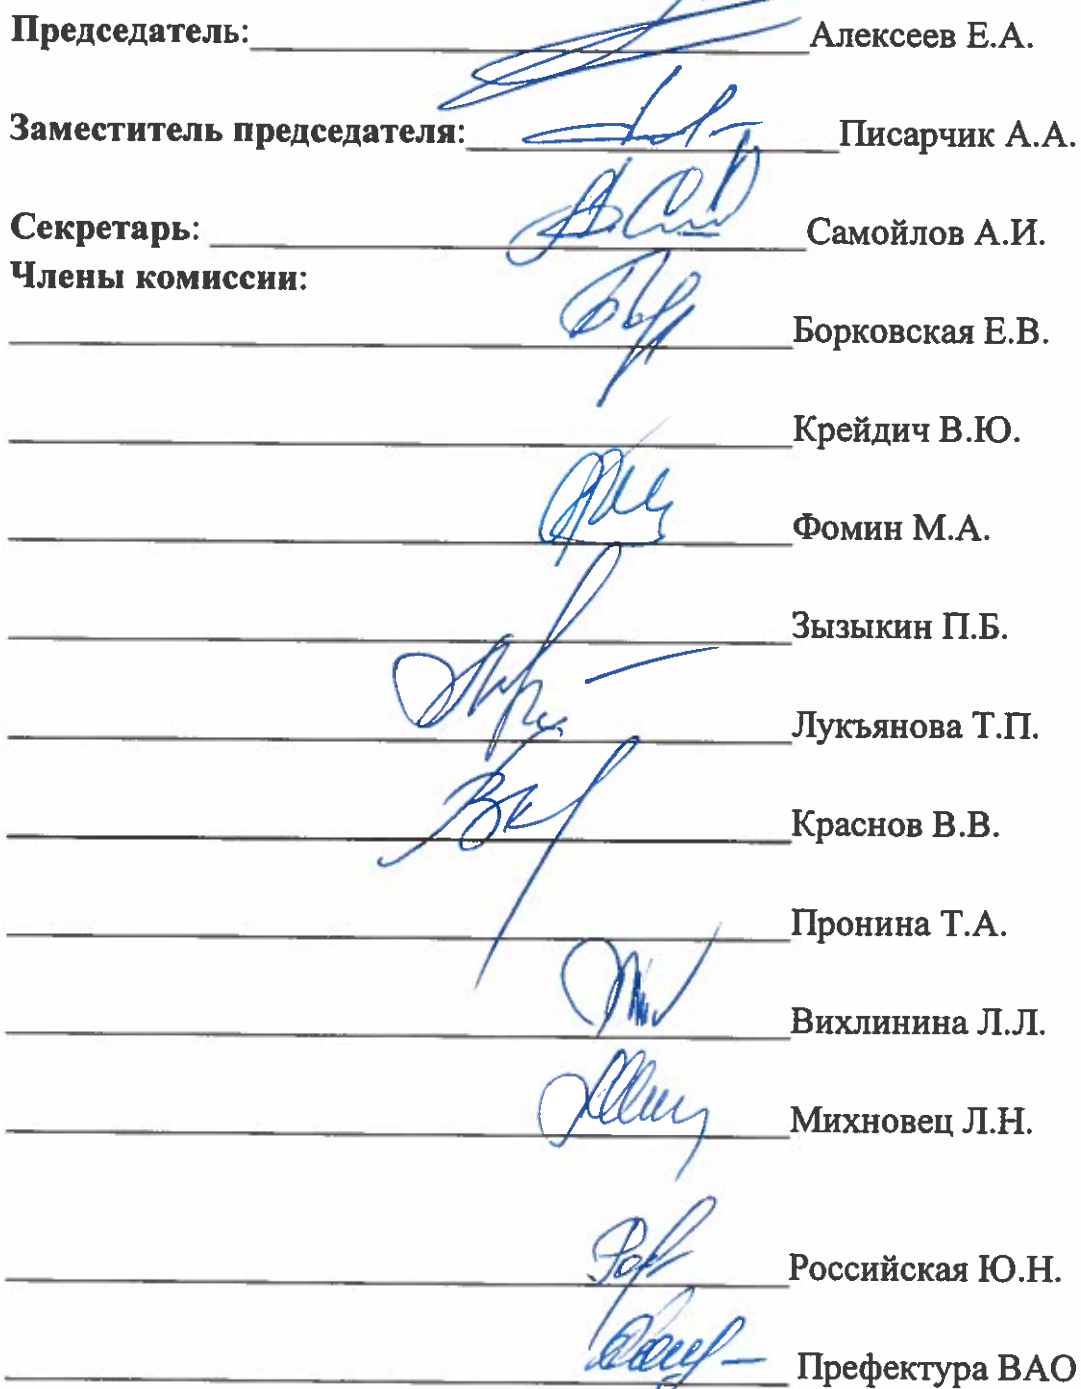 Председатель: Алексеев Е.А.
Заместитель председателя: Писарчик А.А.
Секретарь: Самойлов А.И.
Члены комиссии:
Борковская Е.В.
Крейдич В.Ю.
Фомин М.А.
Зызыкин П.Б.
Лукъянова Т.П.
Краснов В.В.
Пронина Т.А.
Вихлинина Л.Л.
Михновец Л.Н.
Российская Ю.Н.
Префектура ВАО